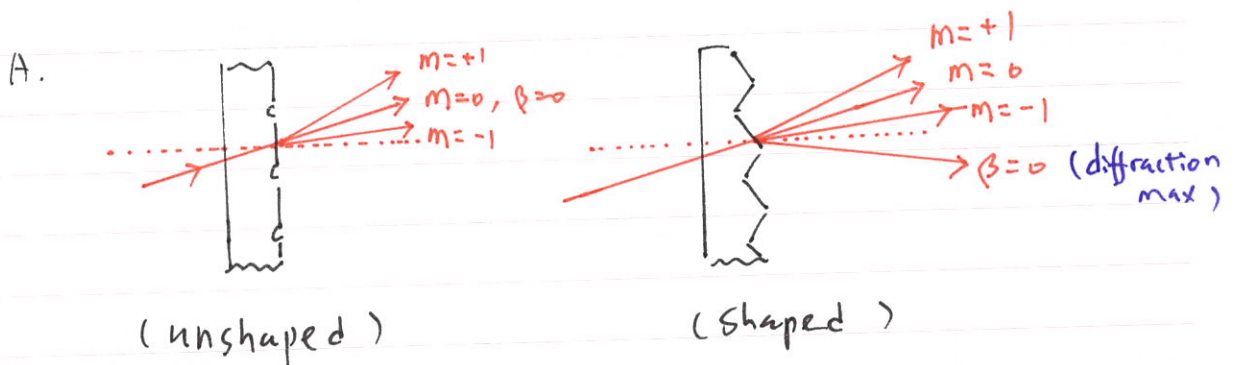 A.
m=+1
m=0, β=0
m=-1
(unshaped)
m=+1
m=0
m=-1
β=0 (diffraction
max)
(shaped)